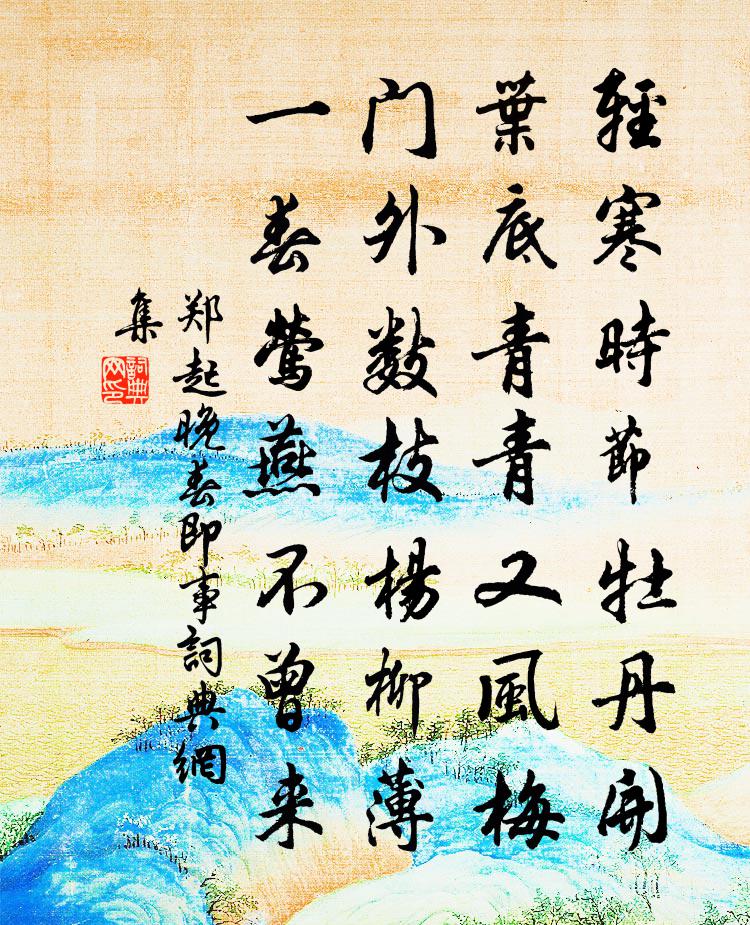 輕寒時節牡丹開
葉底青青又風梅
门外數枝楊柳薄
一春鶯燕不曾来
郑起晚春即事詞典網
集
詞典
网印